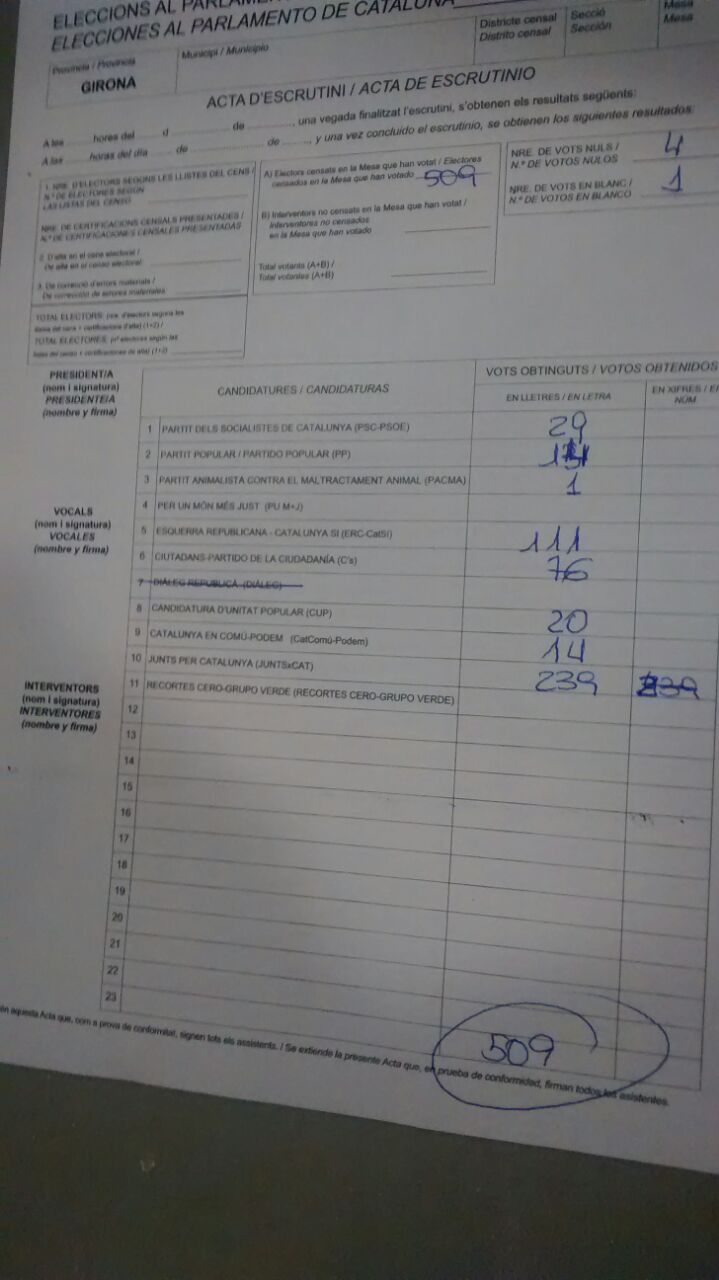 ELECCIONS AL PARLAMEN
ELECCIONES AL PARLAMENTO DE CATALUÑA
Província / Provincia
GIRONA
Municipi / Municipio
Districte censal
Distrito censal
Secció
Sección
Mesa
Mesa
ACTA D'ESCRUTINI / ACTA DE ESCRUTINIO
A les ........ hores del ...... d .................. de .............., una vegada finalitzat l'escrutini, s'obtenen els resultats següents:
A las ........ horas del día ...... de .................. de ........, y una vez concluido el escrutinio, se obtienen los siguientes resultados:
1. NRE. D'ELECTORS SEGONS LES LLISTES DEL CENS /
N.º DE ELECTORES SEGÚN
LAS LISTAS DEL CENSO
NRE. DE CERTIFICACIONS CENSALS PRESENTADES /
N.º DE CERTIFICACIONES CENSALES PRESENTADAS
2. D'alta en el cens electoral /
De alta en el censo electoral
3. De correcció d'errors materials /
De corrección de errores materiales
TOTAL ELECTORS (nre. d'electors segons les
llistes del cens + certificacions d'alta) (1+2) /
TOTAL ELECTORES (nº electores según las
listas del censo + certificaciones de alta) (1+2)
A) Electors censats en la Mesa que han votat / Electores
censados en la Mesa que han votado 509
B) Interventors no censats en la Mesa que han votat /
Interventores no censados
en la Mesa que han votado
Total votants (A+B) /
Total votantes (A+B)
NRE. DE VOTS NULS /
N.º DE VOTOS NULOS 4
NRE. DE VOTS EN BLANC /
N.º DE VOTOS EN BLANCO 1
PRESIDENT/A
(nom i signatura)
PRESIDENTE/A
(nombre y firma)
VOCALS
(nom i signatura)
VOCALES
(nombre y firma)
INTERVENTORS
(nom i signatura)
INTERVENTORES
(nombre y firma)
CANDIDATURES / CANDIDATURAS
VOTS OBTINGUTS / VOTOS OBTENIDOS
EN LLETRES / EN LETRA
EN XIFRES / E
NÚM.
1 PARTIT DELS SOCIALISTES DE CATALUNYA (PSC-PSOE) 29
2 PARTIT POPULAR / PARTIDO POPULAR (PP)
3 PARTIT ANIMALISTA CONTRA EL MALTRACTAMENT ANIMAL (PACMA) 1
4 PER UN MÓN MÉS JUST (PU M+J)
5 ESQUERRA REPUBLICANA - CATALUNYA SÍ (ERC-CatSí) 111
6 CIUTADANS-PARTIDO DE LA CIUDADANÍA (C's) 76
7 DIÀLEG REPUBLICÀ (DIÀLEG)
8 CANDIDATURA D'UNITAT POPULAR (CUP) 20
9 CATALUNYA EN COMÚ-PODEM (CatComú-Podem) 14
10 JUNTS PER CATALUNYA (JUNTSxCAT) 239 239
11 RECORTES CERO-GRUPO VERDE (RECORTES CERO-GRUPO VERDE)
12
13
14
15
16
17
18
19
20
21
22
23
509
én aquesta Acta que, com a prova de conformitat, signen tots els assistents. / Se extiende la presente Acta que, en prueba de conformidad, firman todos los asistentes.